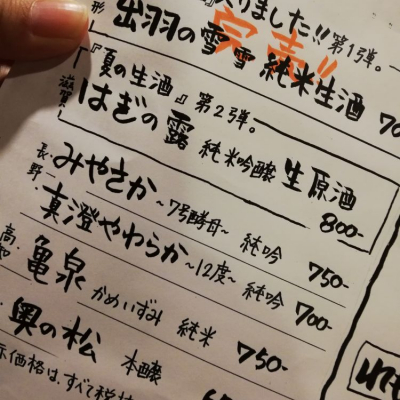 入りました!! 第1弾。
形 出羽の雪 純米生酒 70
完売!!
『夏の生酒』第2弾。
滋賀 はぎの露 純米吟醸 生原酒
800-
長野 みやさか ~7号酵母~ 純吟 750-
真澄やわらか ~12度~ 純吟 700-
高知 亀泉 かめいずみ 純米 750-
奥の松 本醸
示価格は、すべて税